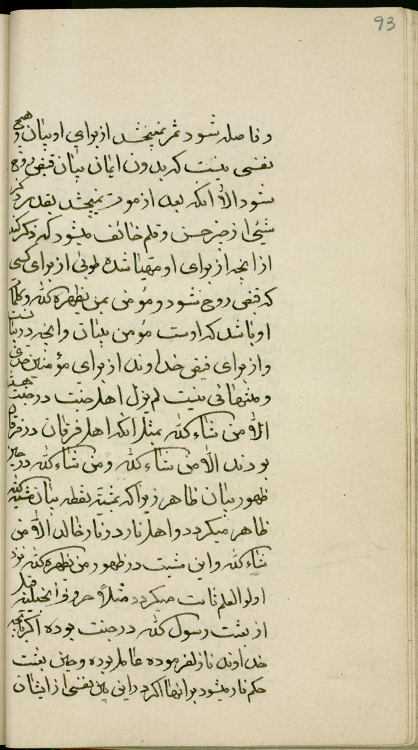 93
و فاصله شود ثمر نمیبخشد از برای او بیان و هیچ
نفسی نیست که بدون ایمان بیان قبض روح
شود الا انکه بعد از موت نمیبخشد بقدر ذکر
شیئی از جزء حسن و قلم خائف میشود که ذکر کند
از انچه از برای او مهیا شده طوبی از برای کسی
که قبض روح شود و مؤمن بمن یظهره الله و کلمات
او باشد که اوست مؤمن ببیان و انچه در بیان است
و از برای فیض خداوند از برای مؤمنین
و منتهائی نیست لم یزل اهل جنت در جنت هستند
الا من شاء الله بمثل انکه اهل فرقان در فرقان
بودند الا من شاء الله و من شاء الله در حین
ظهور بیان ظاهر زیرا که مشیة نقطه بیان مشیة الله
ظاهر میکردد و اهل نار در نار خالد الا من
شاء الله و این مشیت در ظهور من یظهره الله نزد
اولو العلم ثابت میکردد مثلا حروف انجیلیه قبل
از بعثت رسول الله در جنت بوده اکر بانچه
خداوند نازل فرموده عامل بوده و حین بعثت
حکم نار میشود بر انها اکر در این بین نفسی از ایشان